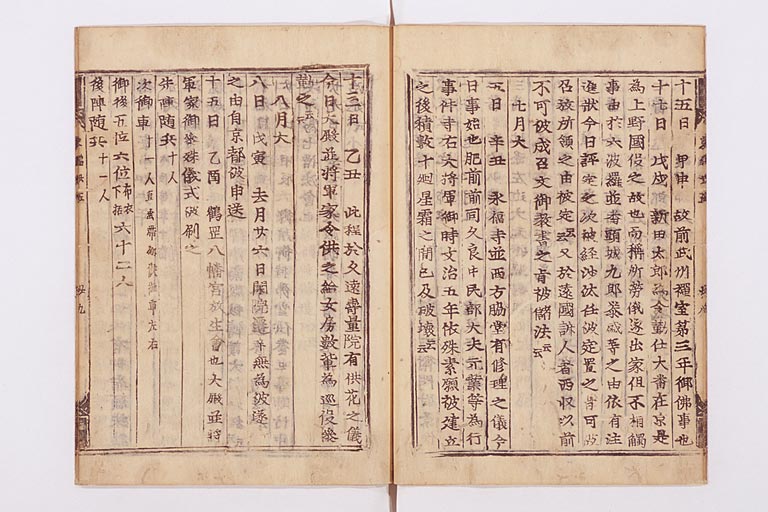 十五日　甲申　故前武州禅室第三年御佛事也
十七日　戊戌　新田太郎為令勤仕大番在京是
為上野國役之故也而稱所労俄遂出家但不相觸
事由於六波羅並番頭城九郎泰盛等之由依有注
進状今日評定之次被経沙汰任被定置之旨可
召放所領之由被定云云又於遠國訴人者西収以前
不可被成召文御教書之旨被儲法云云
七月大
五日　辛丑　永福寺並西方脇堂有修理之儀今
日事始也肥前前司久良中民部大夫元業等為行
事件寺右大将軍御時文治五年依殊素願被建立
之後積数十廻星霜之間已及破壊云云
十三日　乙丑　此程於久遠壽量院有供花之儀
今日大殿並将軍家令供之給女房数輩為巡役
勤之云云
八月大
八日　戊寅　去月廿六日閑院遷幸無為被遂
之由自京都被申送
十五日　乙酉　鶴岡八幡宮放生會也大殿並将
軍家御参殊儀式被刷之
先陣随兵十人
次御車
御後五位六位布衣下括六十二人
後陣随兵十一人